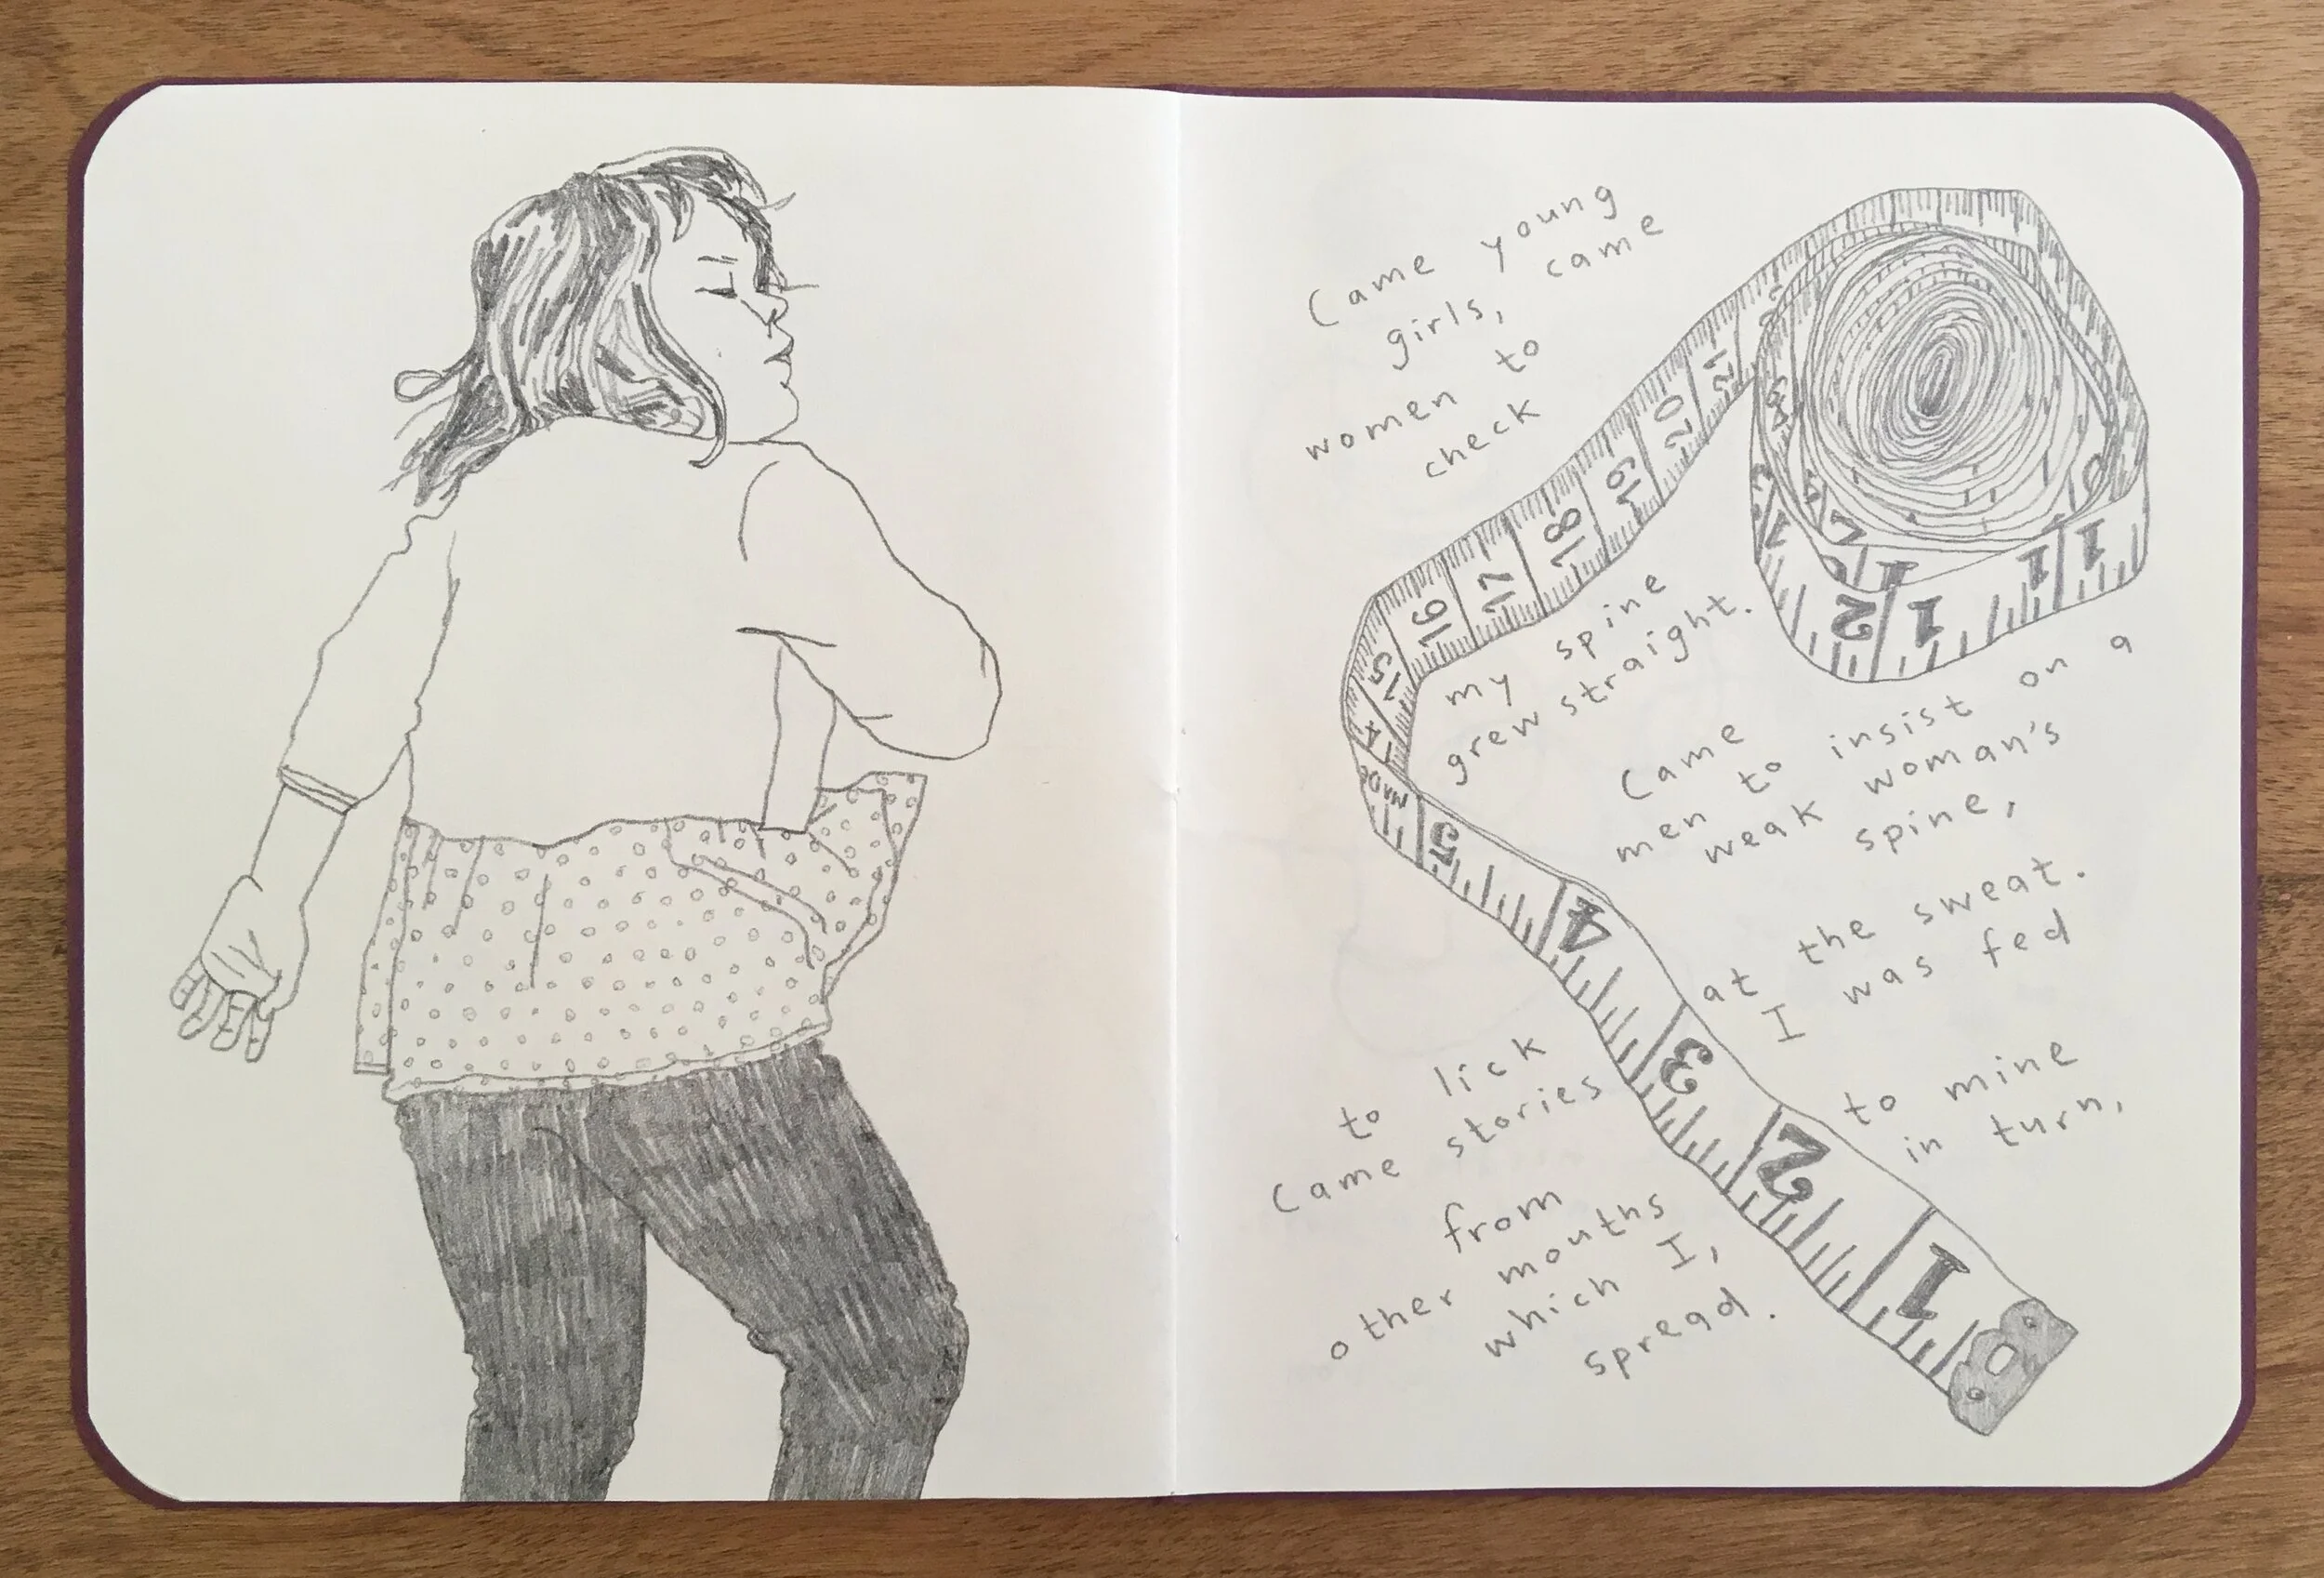 Came young
girls, came
women to
check
my spine
grew straight.
Came
men to insist on a
weak woman's
spine,
to lick at the sweat.
Came stories I was fed
from
other mouths to mine
which I, in turn,
spread.
21
20
19
18
17
16
15
14
5
4
3
2
1